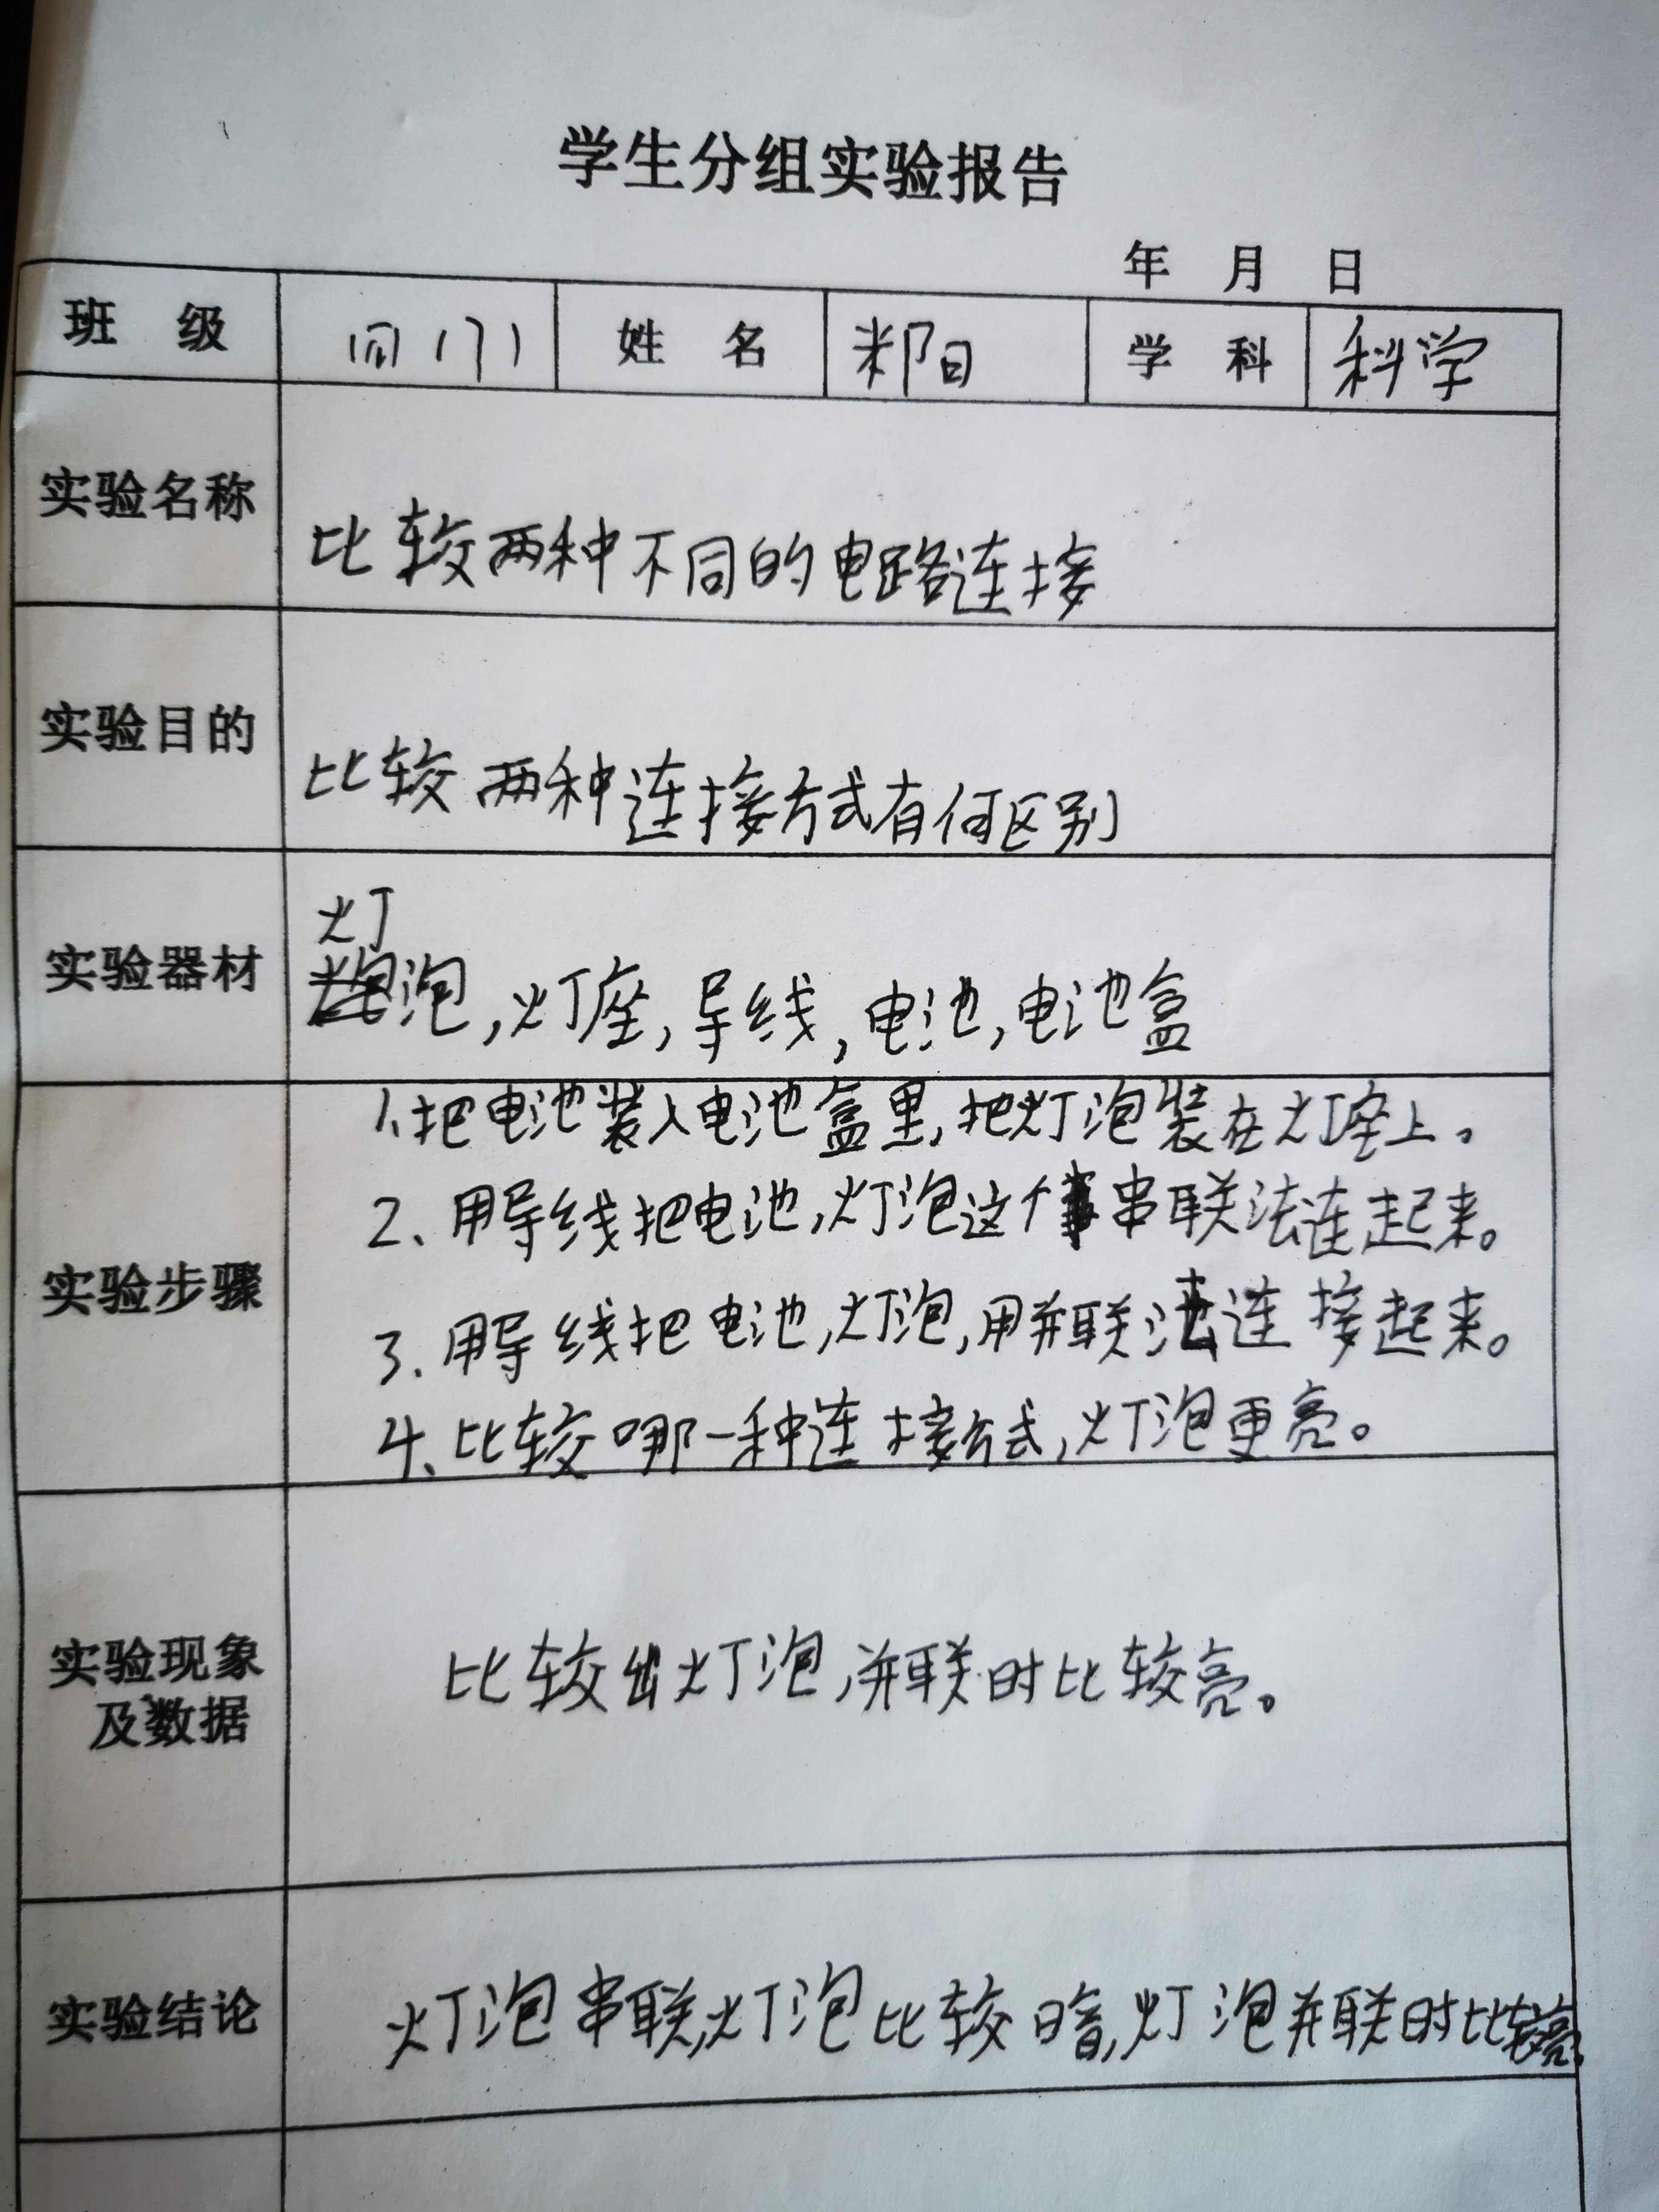 学生分组实验报告
年 月 日
班 级 四(7) 姓 名 阳 学 科 科学
实验名称 比较两种不同的电路连接
实验目的 比较两种连接方式有何区别
灯
实验器材 泡,灯座,导线,电池,电池盒
1.把电池装入电池盒里,把灯泡装在灯座上。
2、用导线把电池,灯泡这个串联法连起来。
实验步骤
3.用导线把电池,灯泡,用并联法连接起来。
4、比较哪一种连接方式,灯泡更亮。
实验现象
及数据
比较出灯泡,并联时比较亮。
实验结论 灯泡串联,灯泡比较暗,灯泡并联时比较亮